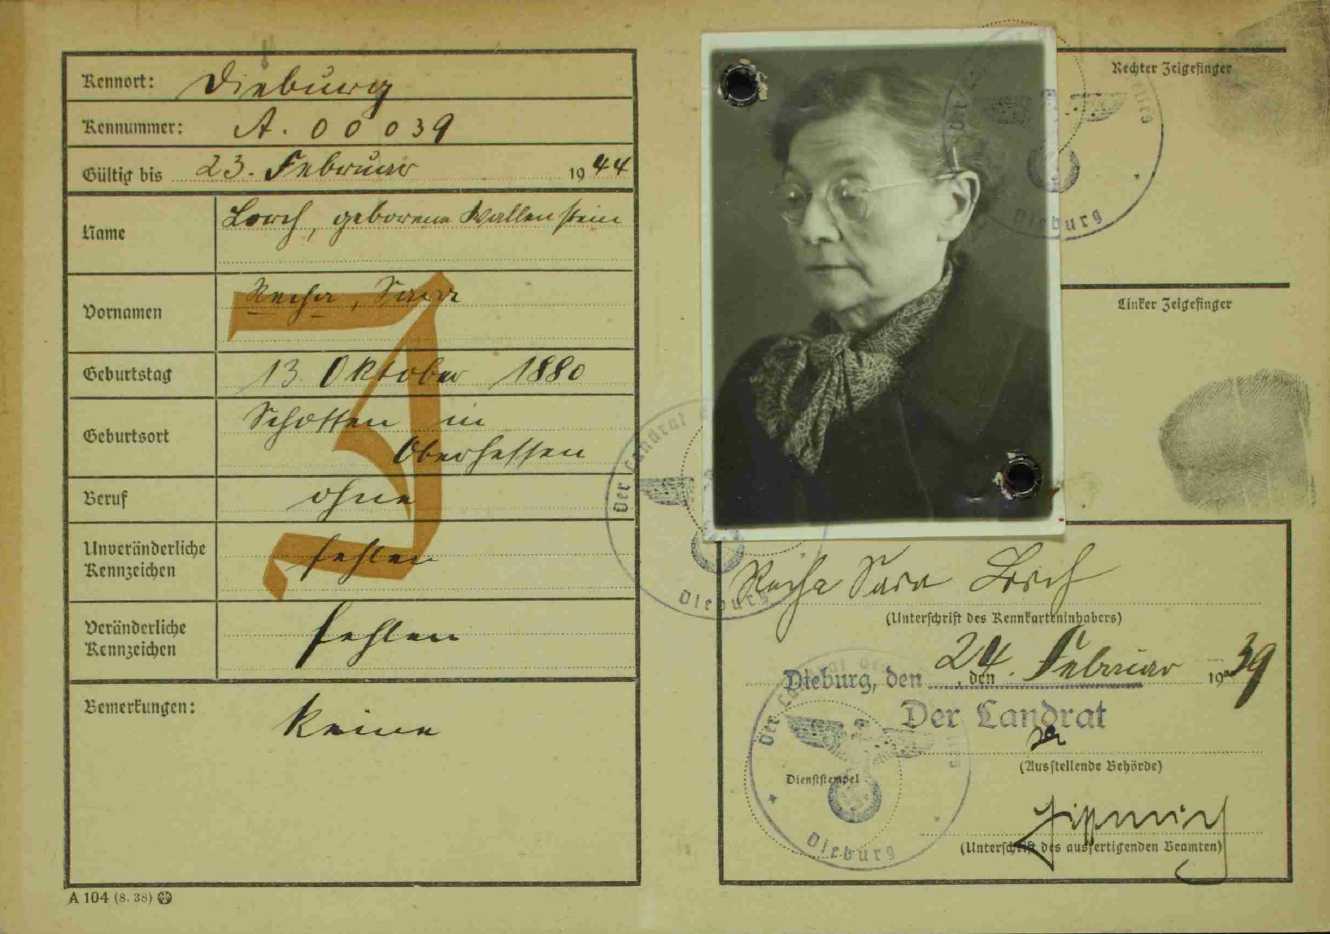 Kennort: Dieburg
Kennummer: A. 00039
Gültig bis 23. Februar 1944
Name Lorch, geborene Wallenstein
Vornamen Recha, Sara
Geburtstag 13. Oktober 1880
Geburtsort Schotten in
Oberhessen
Beruf ohne
Unveränderliche
Kennzeichen fehlen
Veränderliche
Kennzeichen fehlen
Bemerkungen: Keine
A 104 (8. 38)
J
Rechter Zeigefinger
Linker Zeigefinger
Dieburg
Der Landrat
Dieburg
Recha Sara Lorch
(Unterschrift des Kennkarteninhabers)
Dieburg, den den 24. Februar 1939
Der Landrat
(Ausstellende Behörde)
Dienststempel
Der Landrat
Dieburg
(Unterschrift des ausfertigenden Beamten)